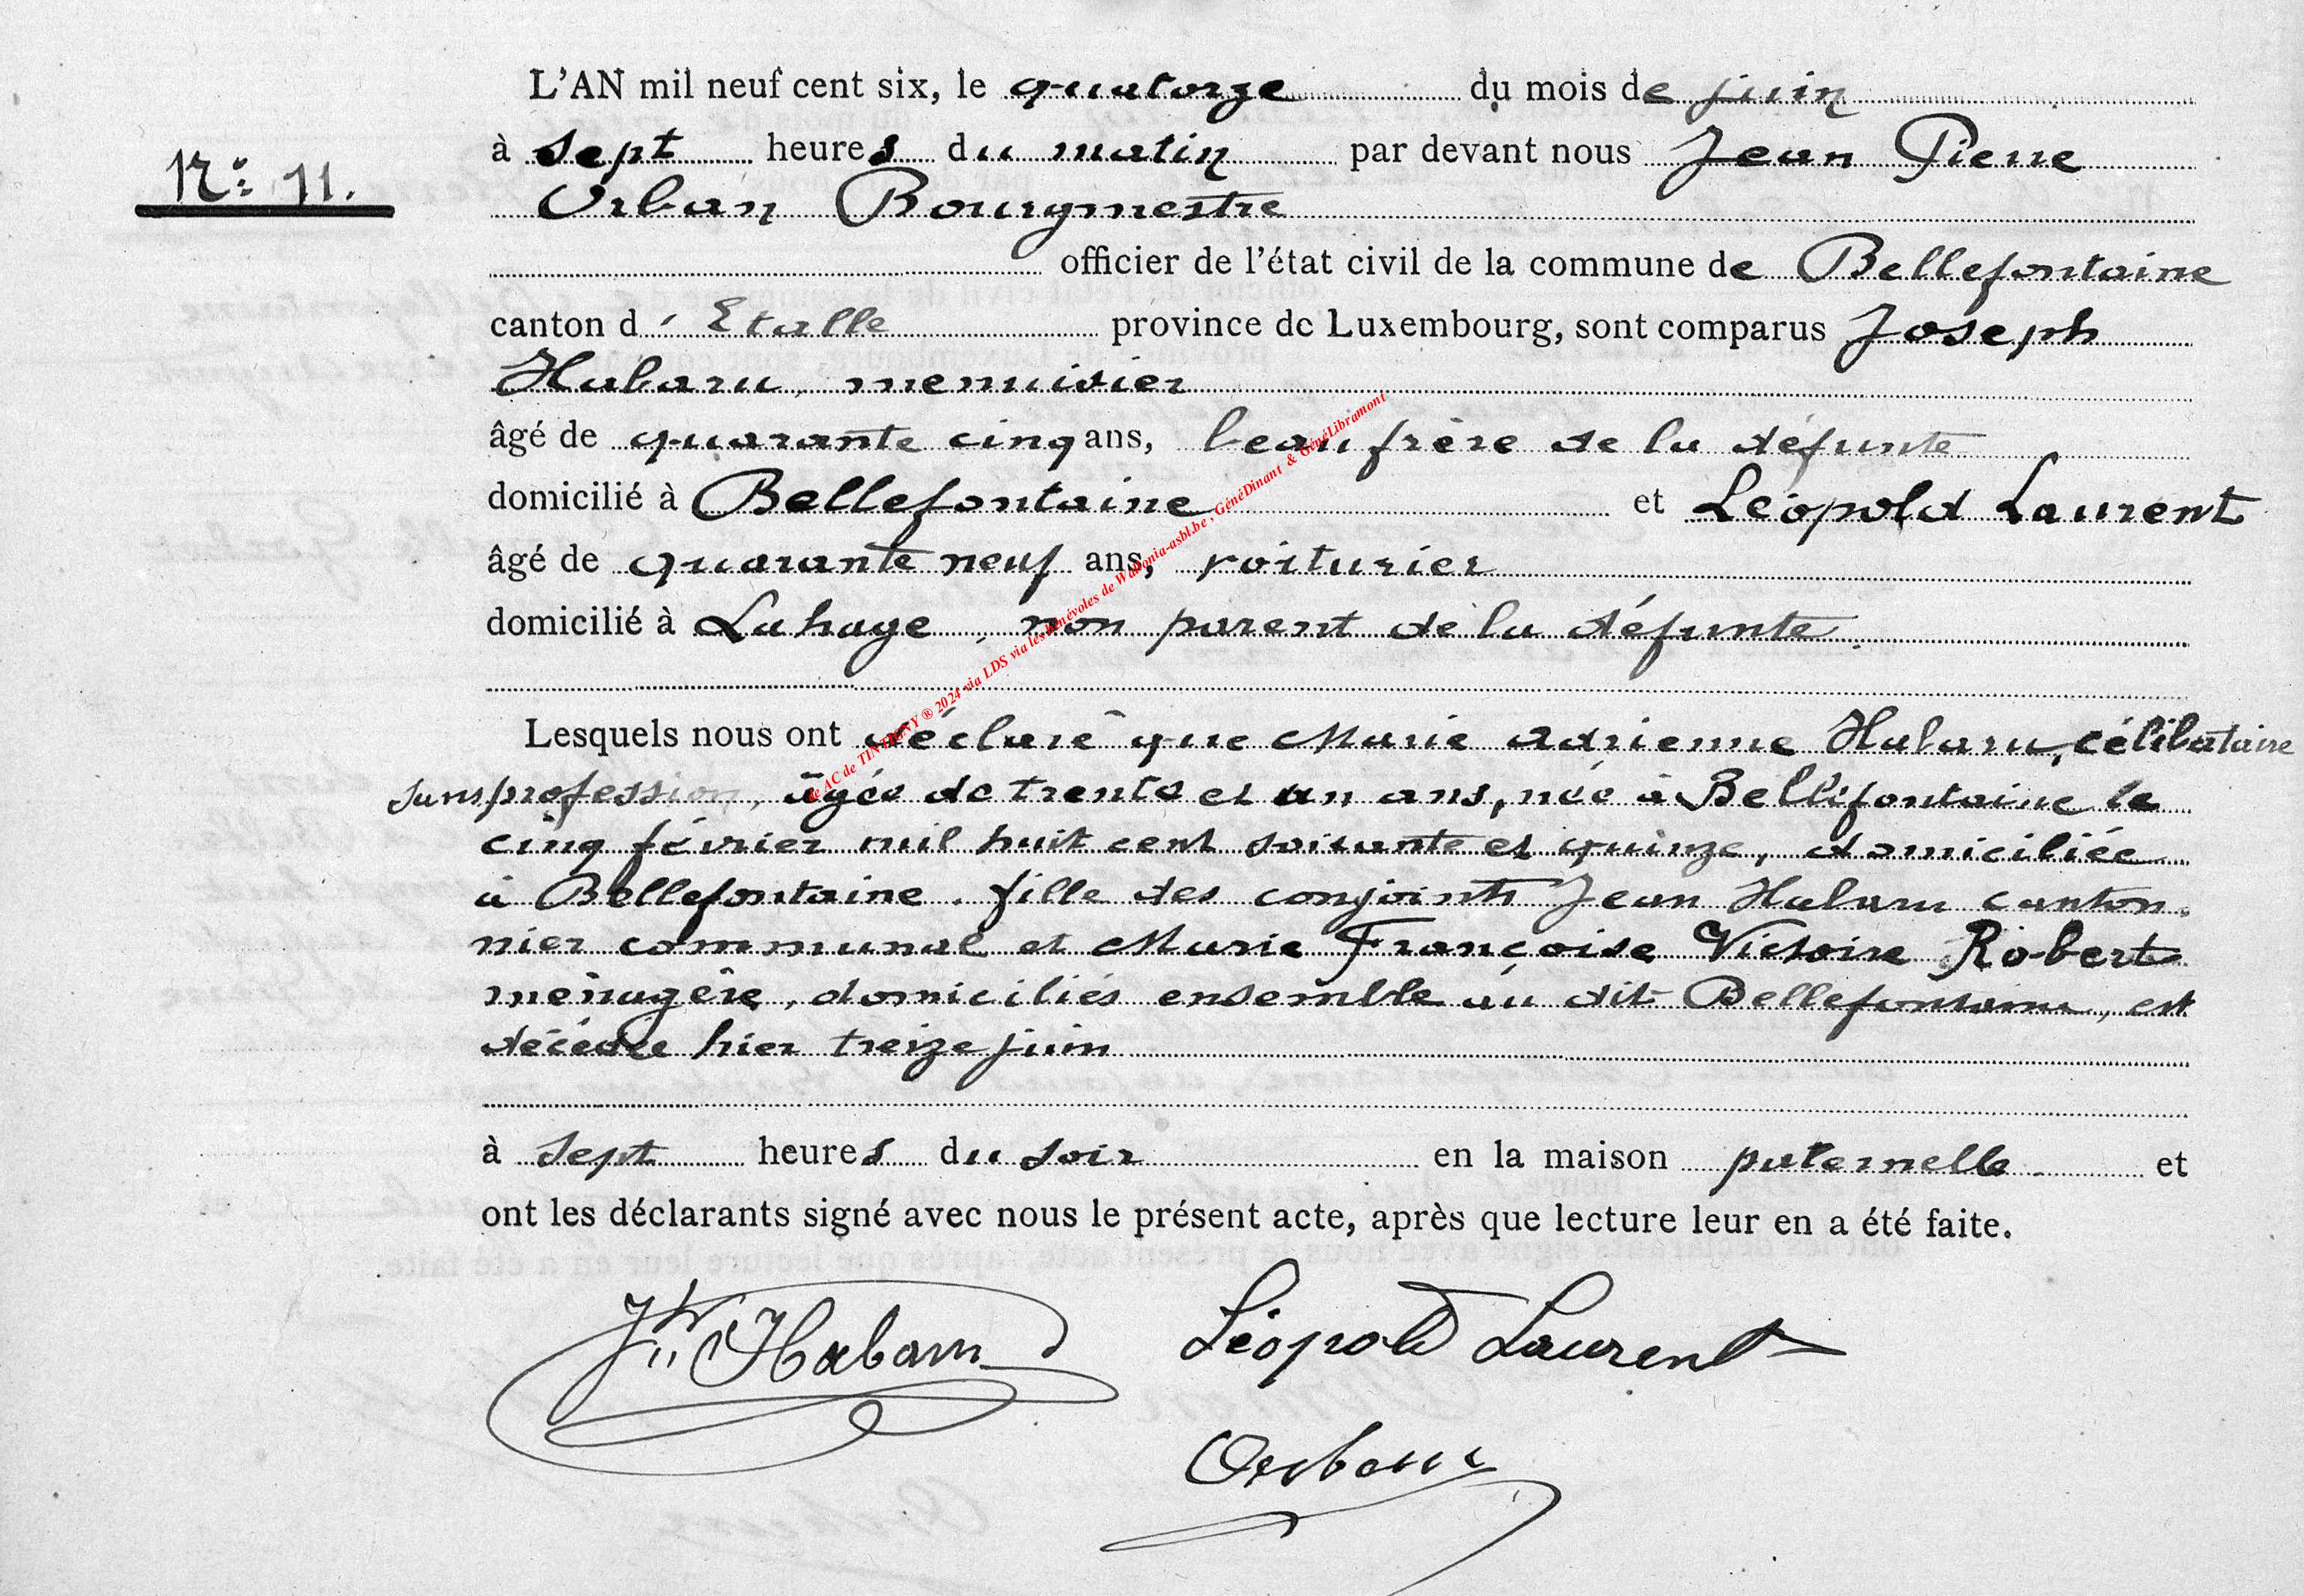 L'AN mil neuf cent six, le quatorze du mois de juin
N° 11.
à sept heures du matin par devant nous Jean Pierre
Urban Bourgmestre
officier de l'état civil de la commune de Bellefontaine
canton d'Etalle province de Luxembourg, sont comparus Joseph
Habaru, menuisier
âgé de quarante cinq ans, beau frère de la défunte
domicilié à Bellefontaine et Léopold Laurent
âgé de quarante neuf ans, voiturier
domicilié à Lahage, non parent de la défunte.
Lesquels nous ont déclaré que Marie Adrienne Habaru, célibataire
sans profession, âgée de trente et un ans, née à Bellefontaine le
cinq février mil huit cent soixante et quinze, domiciliée
à Bellefontaine, fille des conjoints Jean Habaru canton-
nier communal et Marie Françoise Victoire Robert
ménagère, domiciliés ensemble au dit Bellefontaine, est
décédée hier treize juin
à sept heures du soir en la maison paternelle et
ont les déclarants signé avec nous le présent acte, après que lecture leur en a été faite.
Habaru
Léopold Laurent
Urban
de AC de TINTIGNY ® 2024 via LDS via les bénévoles de Wallonia-asbl.be, GénéDinant & GénéLibramont